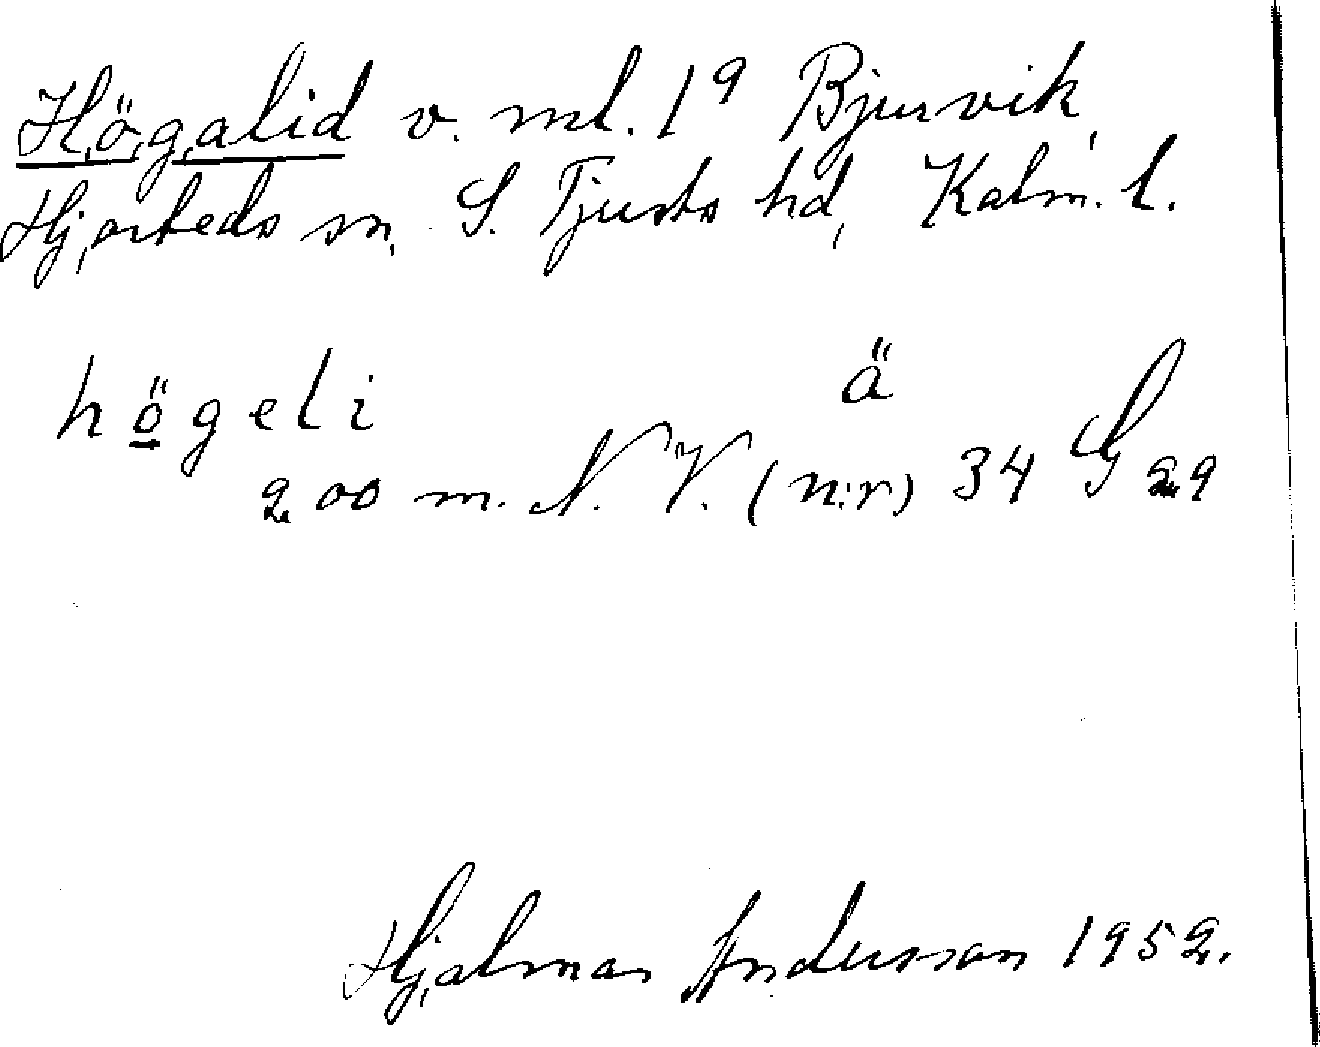 Högalid v. ml. 1⁹ Bjurvik,
Hjorteds sn, S. Tjusts hd, Kalm. l.
högeli ä
200 m. N. V. (n:r) 34 G 29
Hjalmar Andersson 1952.